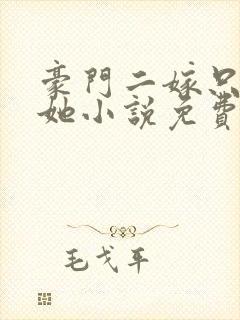 豪門二嫁只
她小說免費
毛戈平